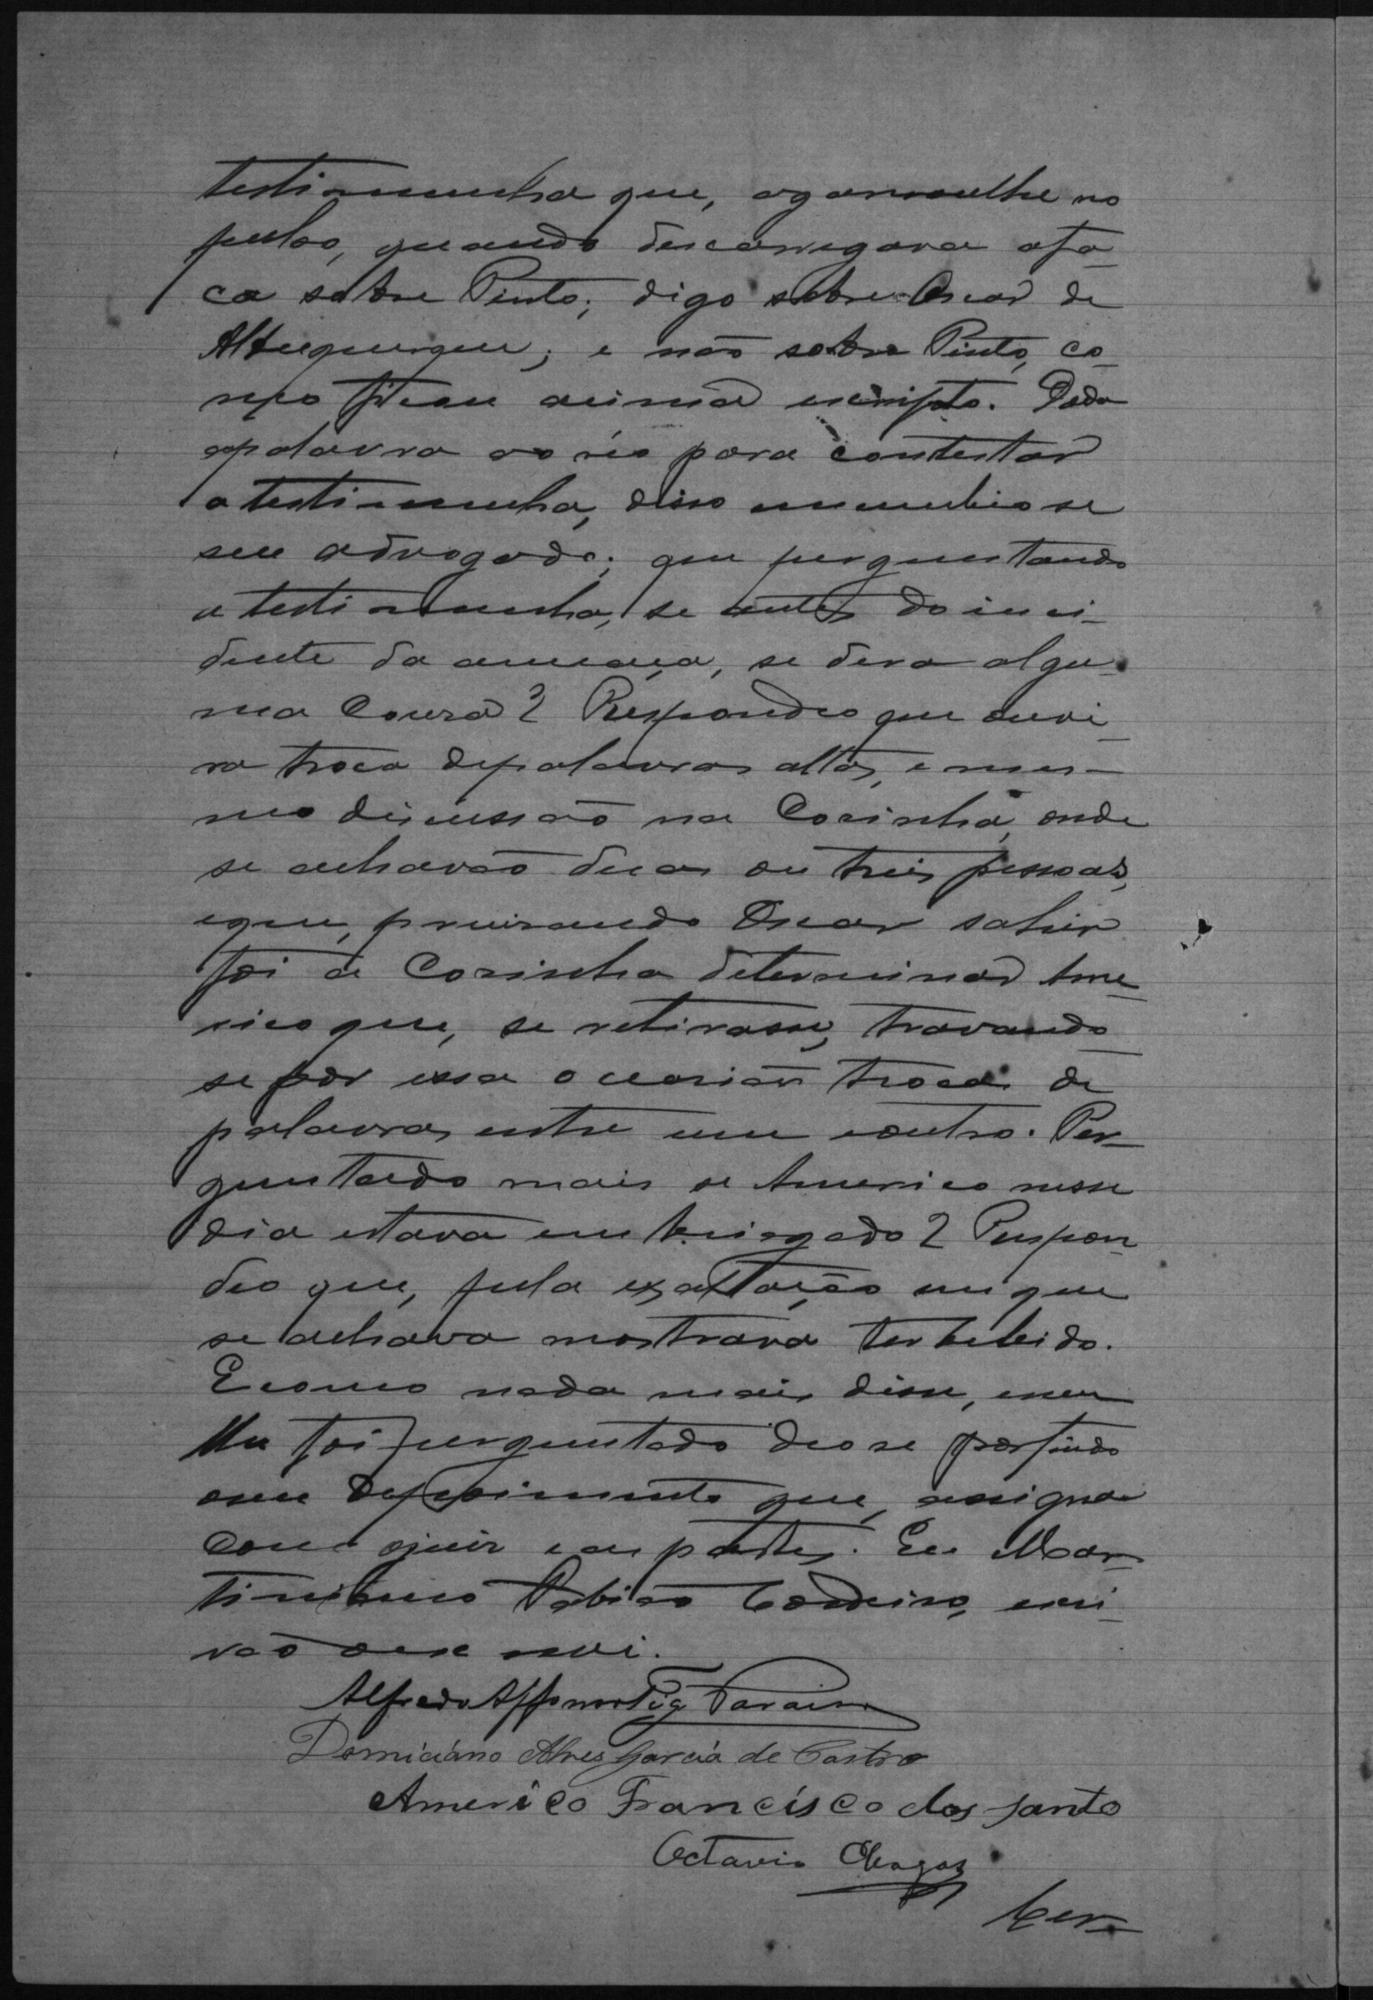 testimunha que, agarroulhe no
pulso, quando descarregava afa-
ca sobre Pinto; digo sobre Oscar de
Albuquerque; e não sobre Pinto, co-
mo ficou acima escripto. Dada
apalavra ao réo para contestar
a testimunha, disso incumbio se
seu advogado; que perguntando
a testimunha, se antes do inci-
dente da ameaça, se dera algu-
ma Cousa? Respondeo que ouvi-
ra troca depalavras altas, e mes-
mo discussão na Cosinha, onde
se achavão duas ou tres pessoas,
eque, precisando Oscar sahir
foi á Cosinha determinar Ame-
rico que, se retirasse, travando
se por essa occasião troca de
palavras entre um eoutro. Per-
guntado mais se Americo nesse
dia estava embriagado? Respon-
deo que, pela exaltação em que
se achava mostrava ter bebido.
Ecomo nada mais disse, enem
lhe foi perguntado deo se por findo
oseu depoimento que, assigna
com ojuiz e as partes. Eu Mar-
tiniano Cordeiro, escri-
vão oescrevi.
Alfredo Affonso Farain
Domiciano Alves Garcia de Castro
Americo Francisco dos santo
Octavio Chagas
Cer-